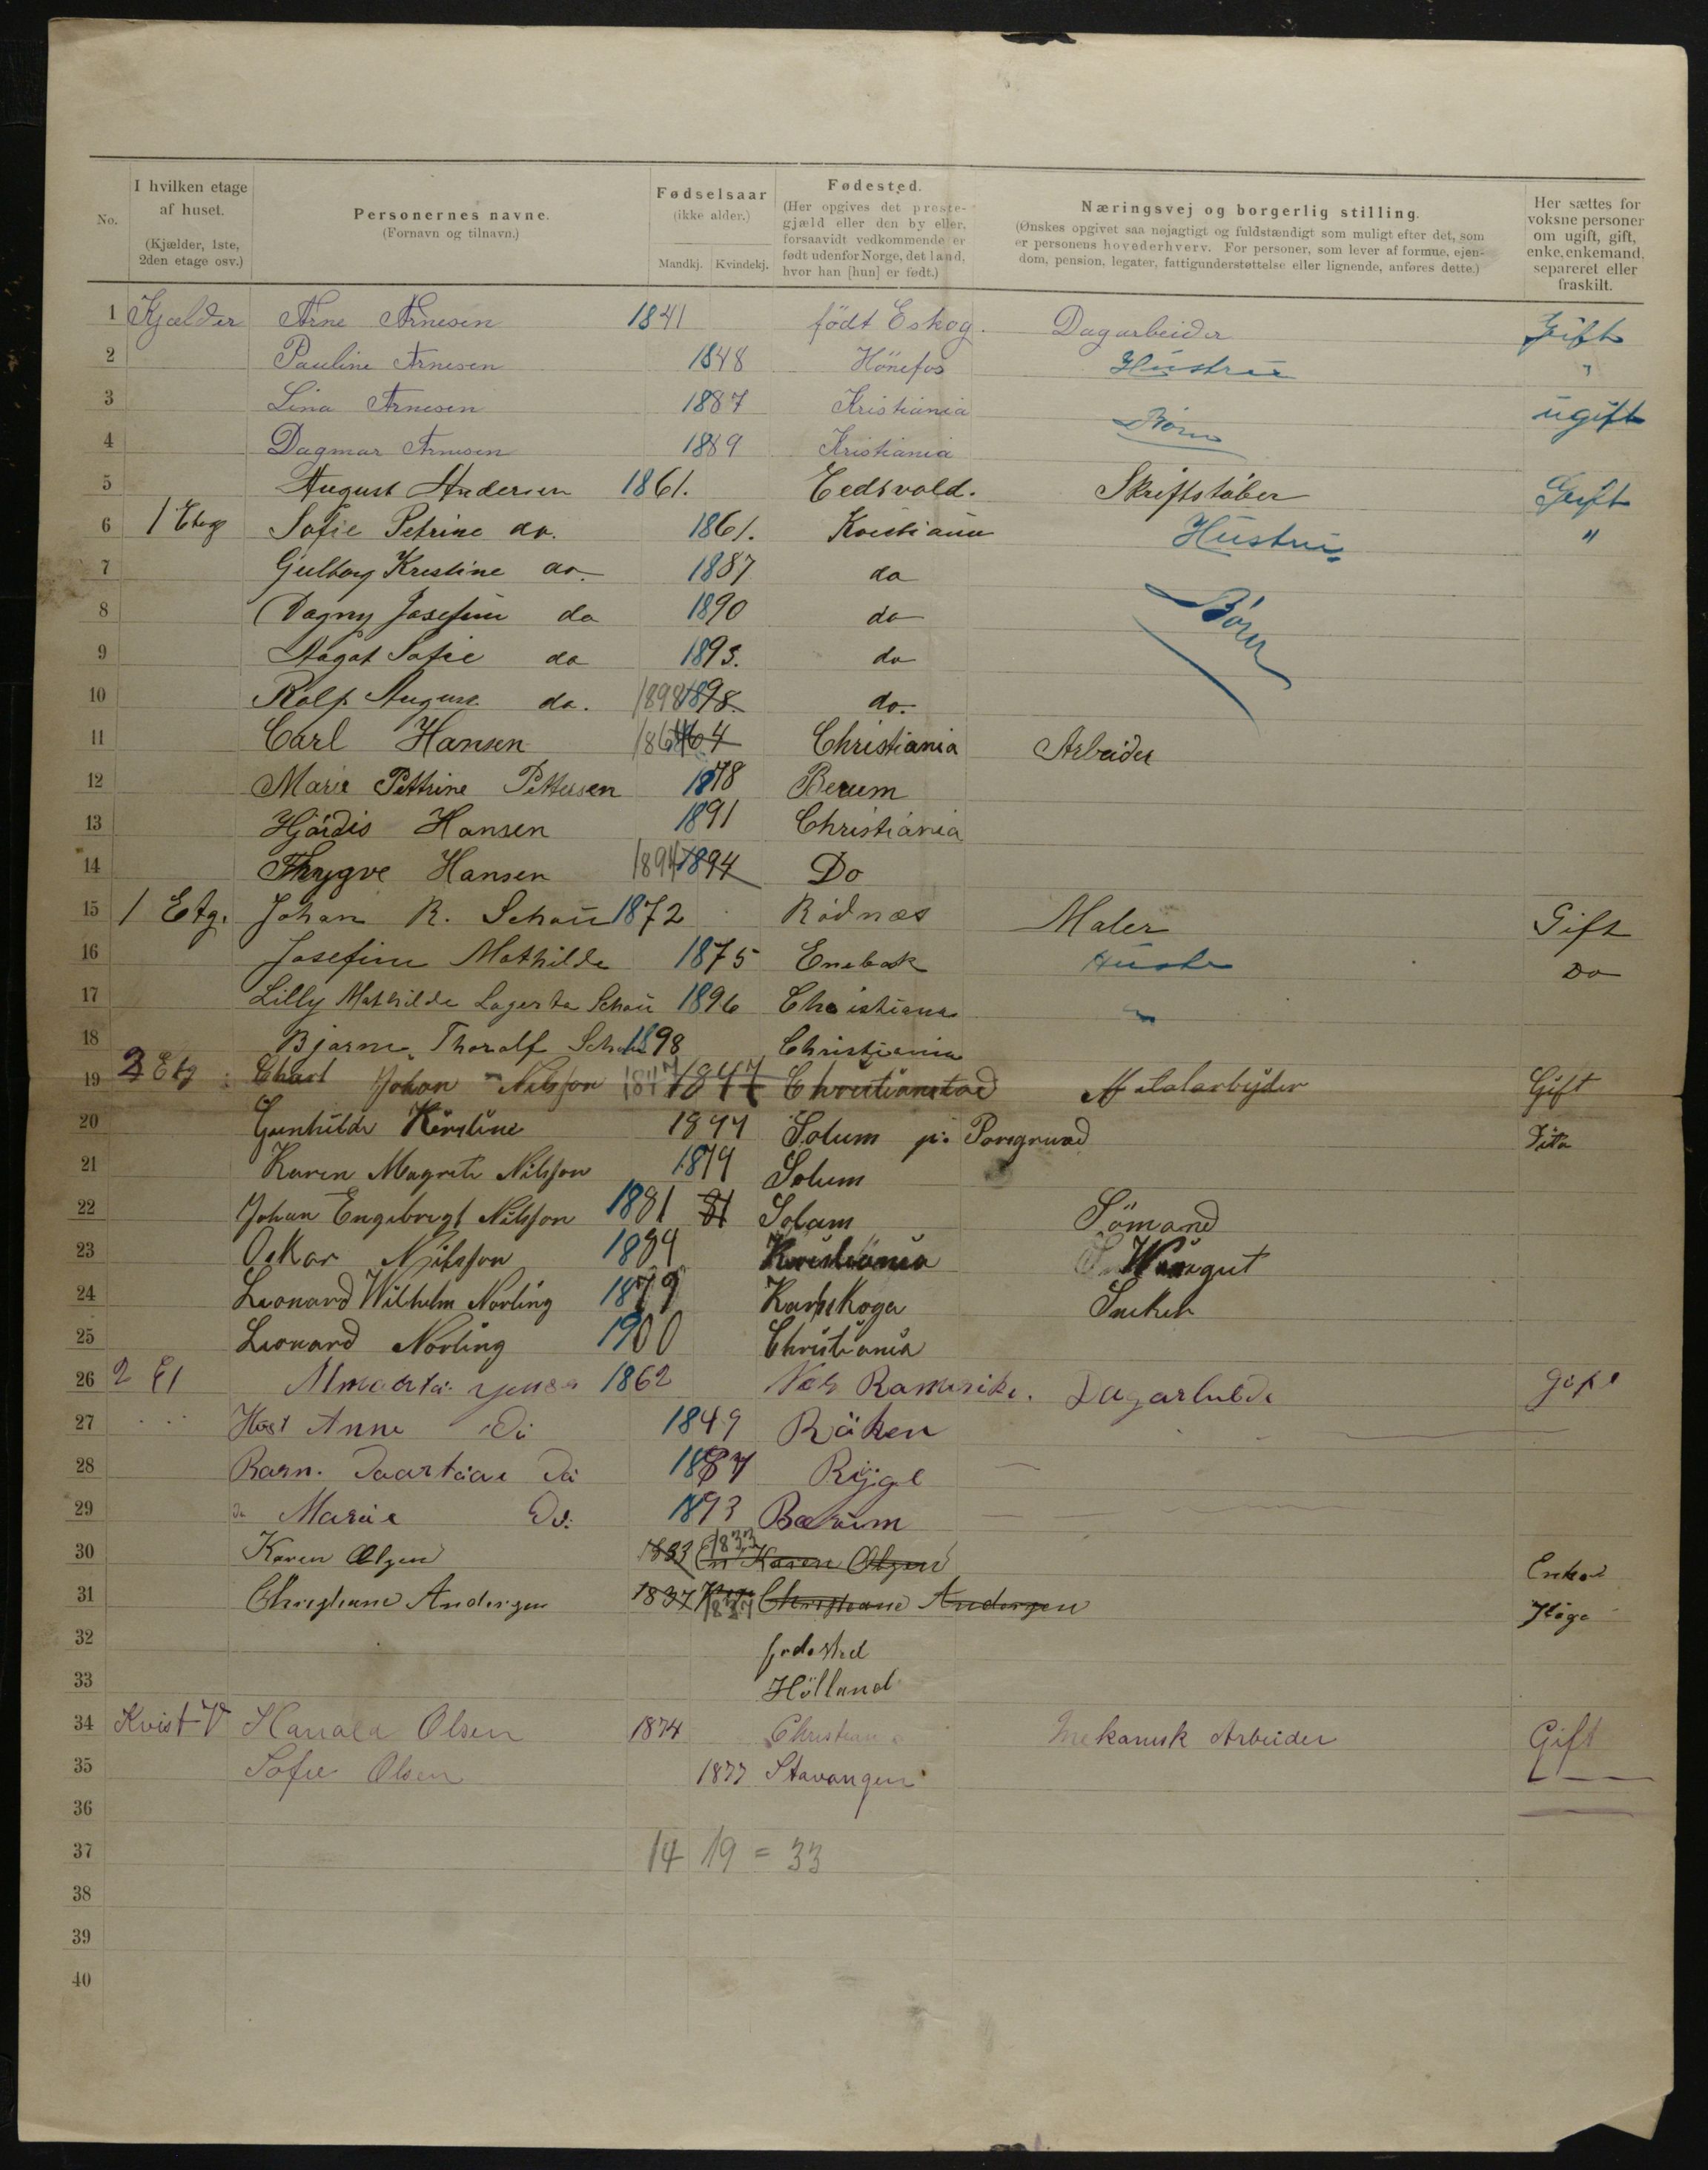 No. I hvilken etage af huset. (Kjælder, 1ste, 2den etage osv.) Personernes navne. (Fornavn og tilnavn.) Fødselsaar (ikke alder.) Mandkj. Kvindekj. Fødested. (Her opgives det prestegjæld eller den by eller, forsaavidt vedkommende er født udenfor Norge, det land, hvor han [hun] er født.) Næringsvej og borgerlig stilling. (Ønskes opgivet saa nøjagtigt og fuldstændigt som muligt efter det, som er personens hovederhverv. For personer, som lever af formue, ejendom, pension, legater, fattigunderstøttelse eller lignende, anføres dette.) Her sættes for voksne personer om ugift, gift, enke, enkemand, separeret eller fraskilt.
1 Kjælder Arne Arnesen 1841 födt Eskog. Dagarbeider Gift
2 Pauline Arnesen 1848 Hönefos Hustru "
3 Lina Arnesen 1887 Kristiania Börn ugift
4 Dagmar Arnesen 1889 Kristiania
5 August Andersen 1861. Eedsvold. Skriftstöber Gift
6 1 Etag Sofie Petrine do. 1861. Kristiania Hustru "
7 Gulborg Kristine do. 1887 do
8 Dagny Josefine do 1890 do Börn
9 Aagot Sofie do 1893. do
10 Rolf August do. 1898 1898. do.
11 Carl Hansen 1864 64 Christiania Arbeider
12 Marie Pettrine Pettersen 1878 Berum
13 Hjördis Hansen 1891 Christiania
14 Thrygve Hansen 1894 1894 Do
15 1 Etg. Johan R. Schau 1872 Rödnæs Maler Gift
16 Josefine Mathilde 1875 Enebak Hustr Do
17 Lilly Mathilde Lagerta Schau 1896 Christiana
18 Bjarne Thoralf Schau 1898 Christiania
19 2 Etg Johan Nilsson 1847 1847 Christianstad Metalarbejder Gift
20 Gunhilde Kirstine 1844 Solum pr Porsgrund Dito
21 Karen Magrete Nilsson 1879 Solum
22 Johan Engebregt Nilsson 1881 81 Solum Sömand
23 Oskar Nilsson 1889 Kristiania
24 Leonard Wilhelm Norling 1879 Karlskoga Sneker
25 Leonard Norling 1900 Christiania
26 2 Et 1862 Nes Rameriki. Dagarbeide gift
27 Hust Anne Do 1849 Röken
28 Barn. Do 1887 Rygge
29 Do Marie Do. 1893 Bærum
30 Karen Olsen 1833 1833 Karen Olsen Enke
31 Christiane Andersen 1837 1837 Christiane Andersen
32 fodested
33 Hölland
34 Kvist V Olsen 1874 Christiania Mekanisk Arbeider Gift
35 Sofie Olsen 1877 Stavanger
36
37 14 19 = 33
38
39
40